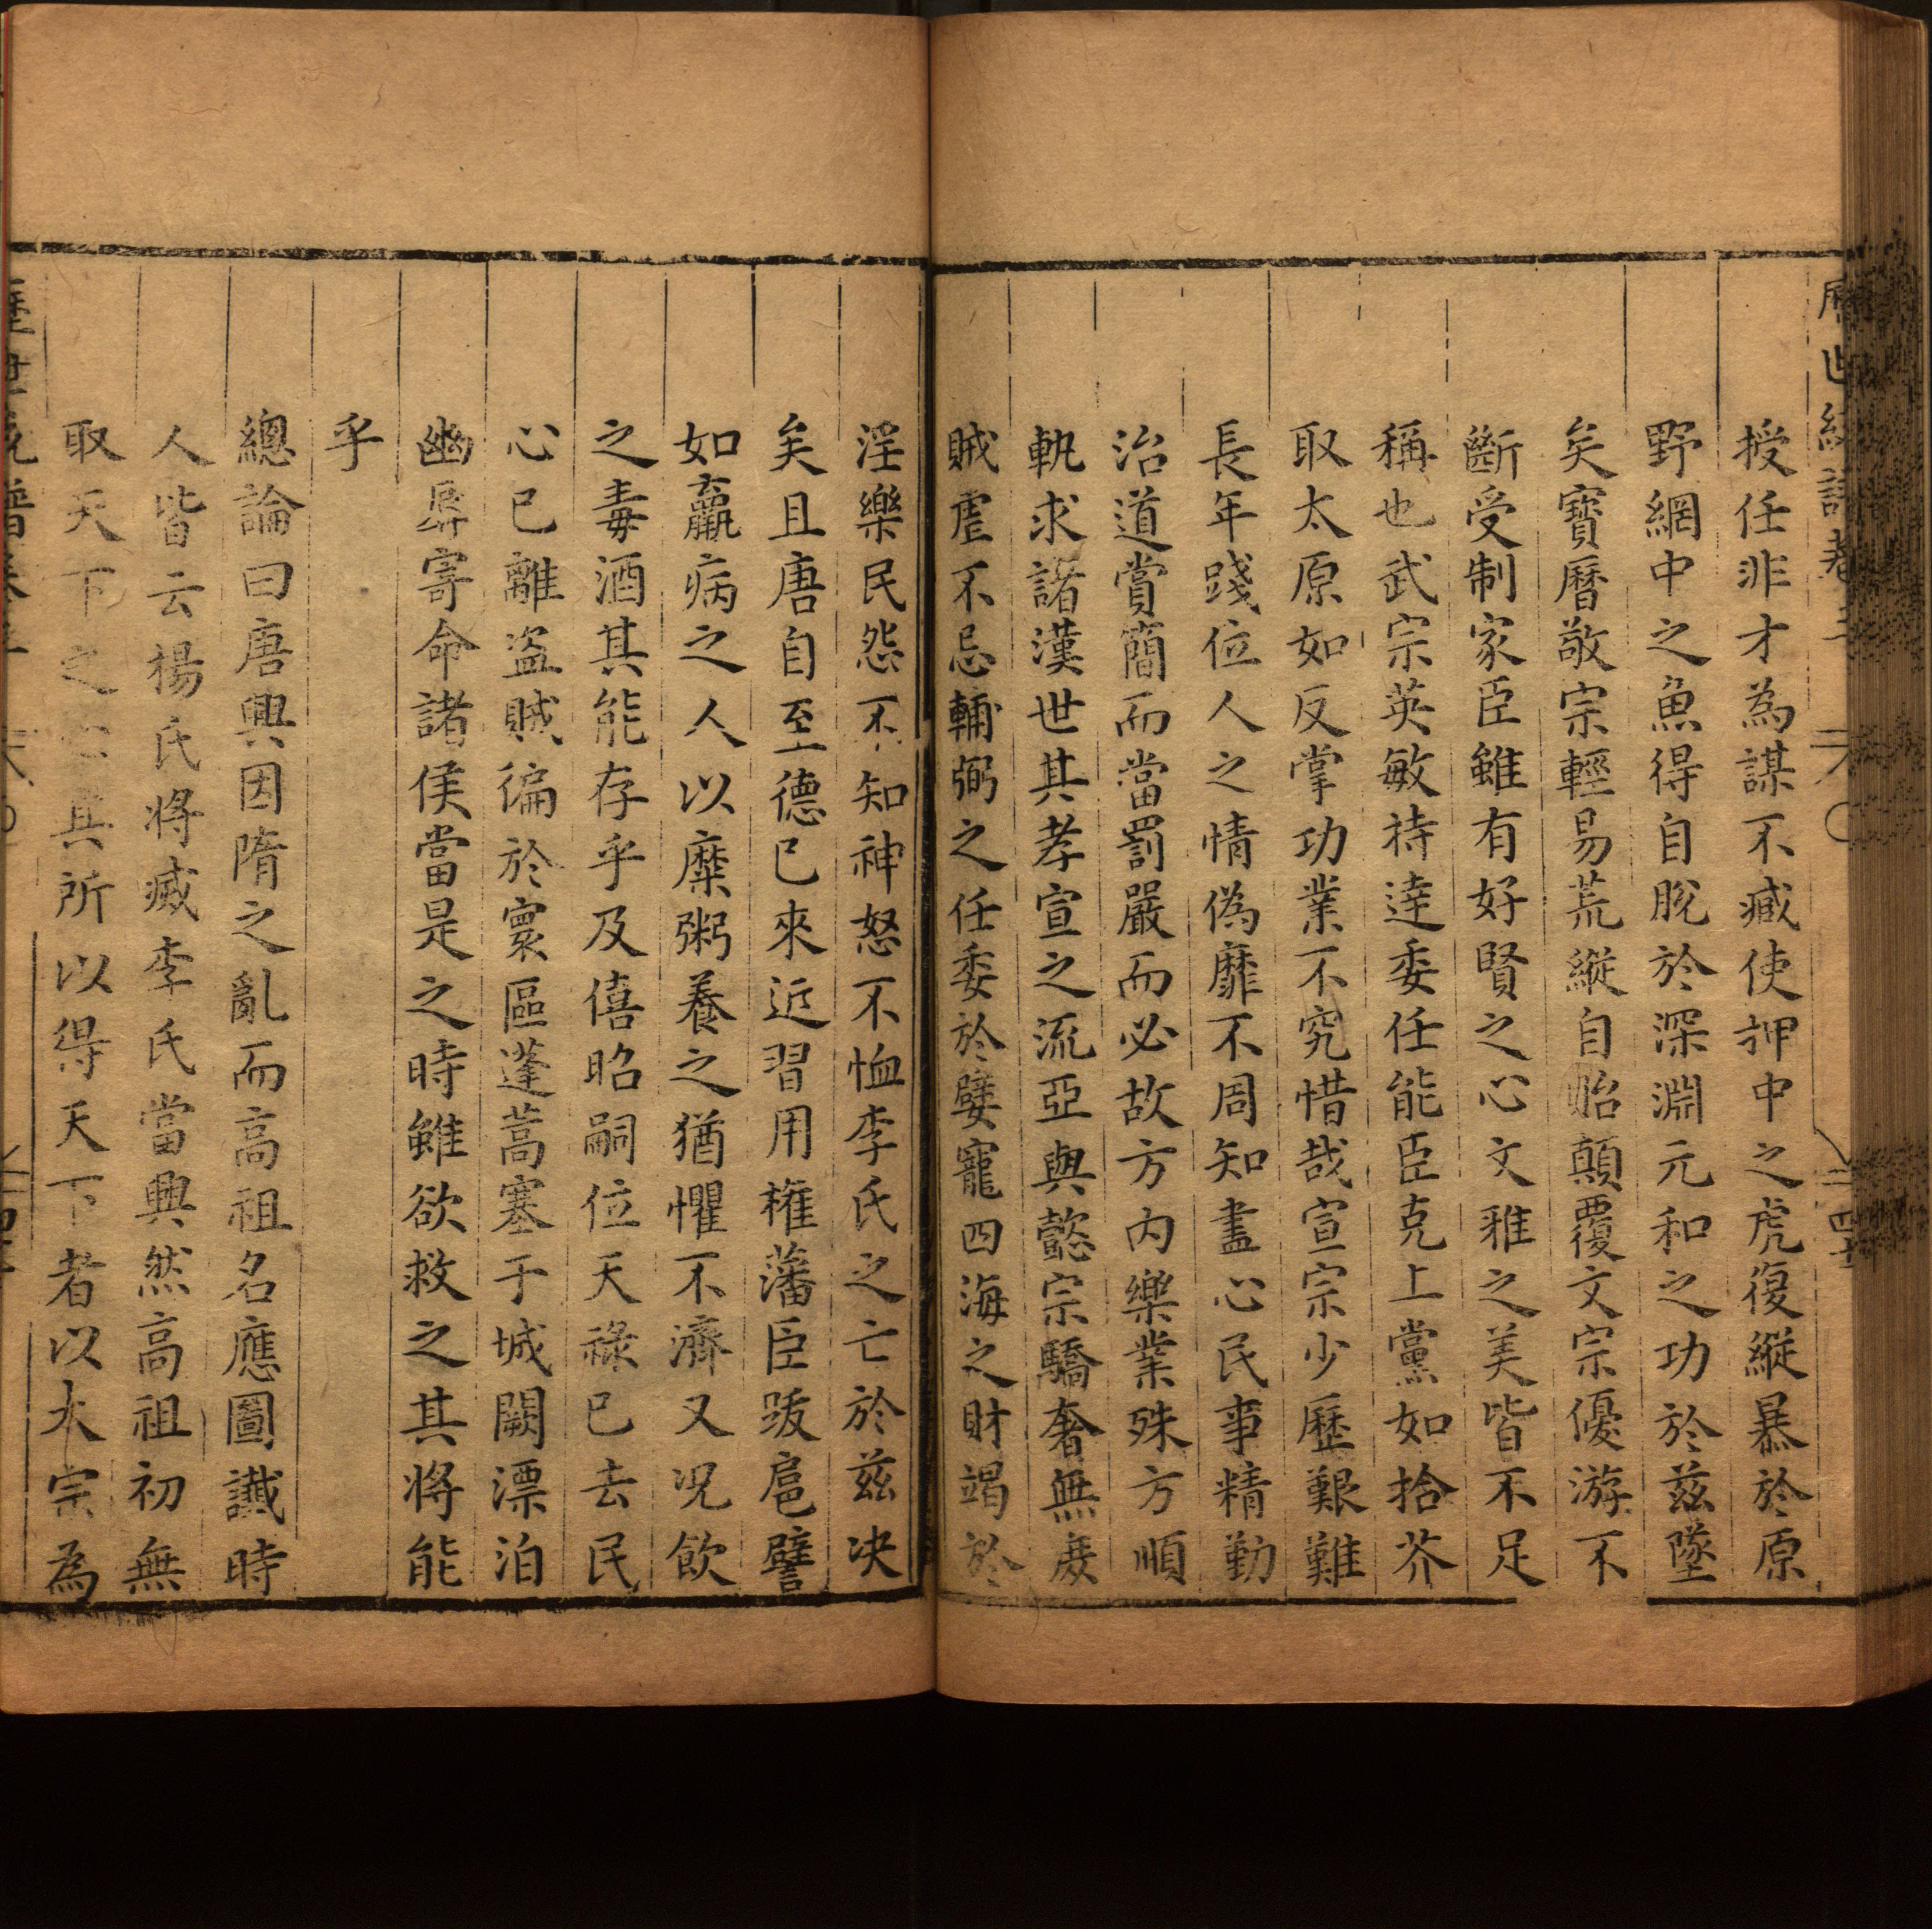 授任非才為謀不臧使押中之虎復縱暴於原
野網中之魚得自脫於深淵元和之功於茲墜
矣寶曆敬宗輕易荒縱自貽顛覆文宗優游不
斷受制家臣雖有好賢之心文雅之美皆不足
稱也武宗英敏待達委任能臣克上黨如拾芥
取太原如反掌功業不究惜哉宣宗少歷艱難
長年踐位人之情偽靡不周知盡心民事精勤
治道賞簡而當罰嚴而必故方內樂業殊方順
軌求諸漢世其孝宣之流亞與懿宗驕奢無度
賊虐不忌輔弼之任委於嬖寵四海之財竭於
淫樂民怨不知神怒不恤李氏之亡於茲决
矣且唐自至德已來近習用權藩臣跋扈譬
如羸病之人以糜粥養之猶懼不濟又况飲
之毒酒其能存乎及僖昭嗣位天祿已去民
心已離盗賊徧於寰區蓬蒿塞于城闕漂泊
幽辱寄命諸侯當是之時雖欲救之其將能
乎
總論曰唐興因隋之亂而高祖名應圖讖時
人皆云楊氏將滅李氏當興然高祖初無
取天下之心其所以得天下者以太宗為